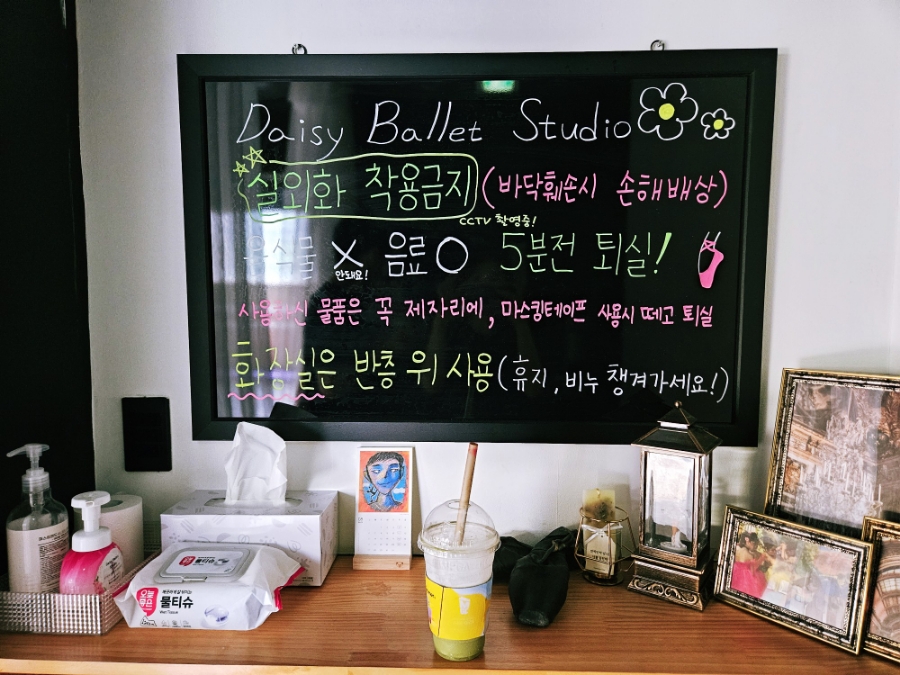 Daisy Ballet Studio
실외화 착용금지 (바닥훼손시 손해배상)
CCTV 촬영중!
X 음료 O 5분전 퇴실!
안돼요!
사용하신 물품은 꼭 제자리에, 마스킹테이프 사용시 떼고 퇴실
화장실은 반층 위 사용 (휴지, 비누 챙겨가세요!)
물티슈